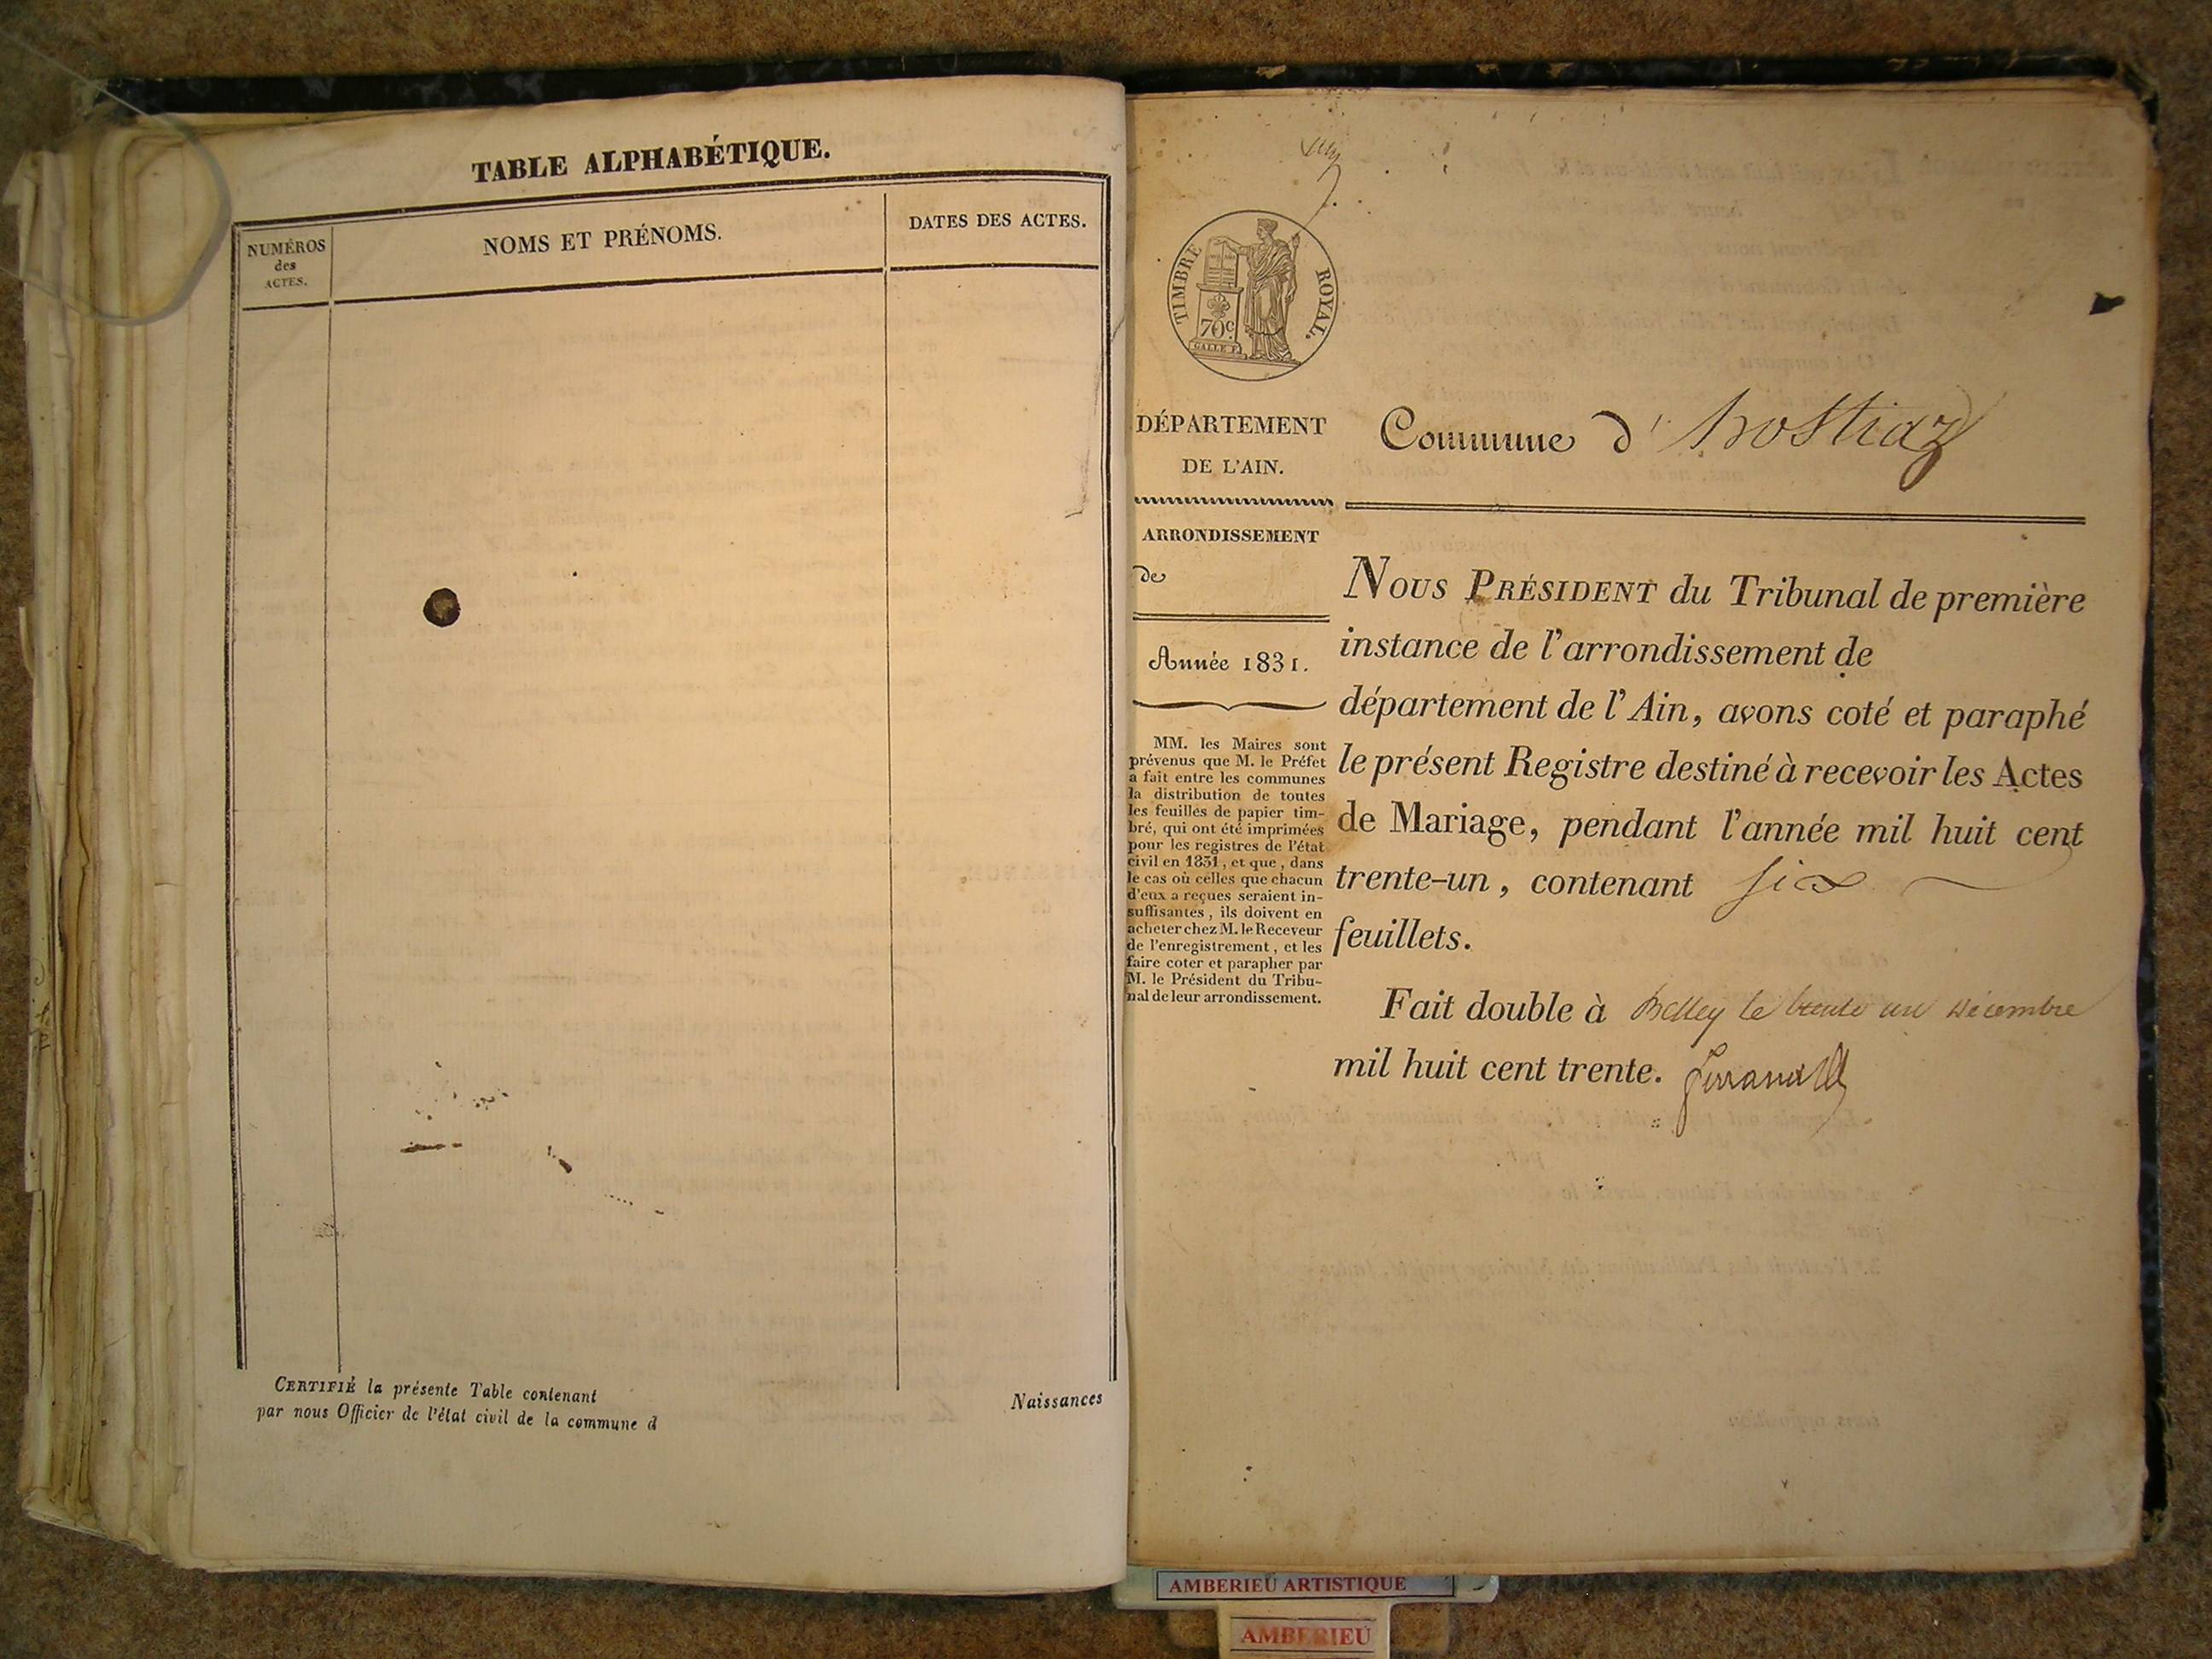 TABLE ALPHABÉTIQUE.
NUMÉROS
des
ACTES.
NOMS ET PRÉNOMS.
DATES DES ACTES.
CERTIFIÉ la présente Table contenant
Naissances
par nous Officier de l'état civil de la commune d
TIMBRE ROYAL.
70c
GALLE F.
DÉPARTEMENT
DE L'AIN.
Commune d' hostiaz
ARRONDISSEMENT
de
Année 1831.
MM. les Maires sont
prévenus que M. le Préfet
a fait entre les communes
la distribution de toutes
les feuilles de papier tim-
bré, qui ont été imprimées
pour les registres de l'état
civil en 1831, et que, dans
le cas où celles que chacun
d'eux a reçues seraient in-
suffisantes, ils doivent en
acheter chez M. le Receveur
de l'enregistrement, et les
faire coter et parapher par
M. le Président du Tribu-
nal de leur arrondissement.
NOUS PRÉSIDENT du Tribunal de première
instance de l'arrondissement de
département de l'Ain, avons coté et paraphé
le présent Registre destiné à recevoir les Actes
de Mariage, pendant l'année mil huit cent
trente-un, contenant six
feuillets.
Fait double à Belley le trente un décembre
mil huit cent trente.
AMBERIEU ARTISTIQUE
AMBERIEU